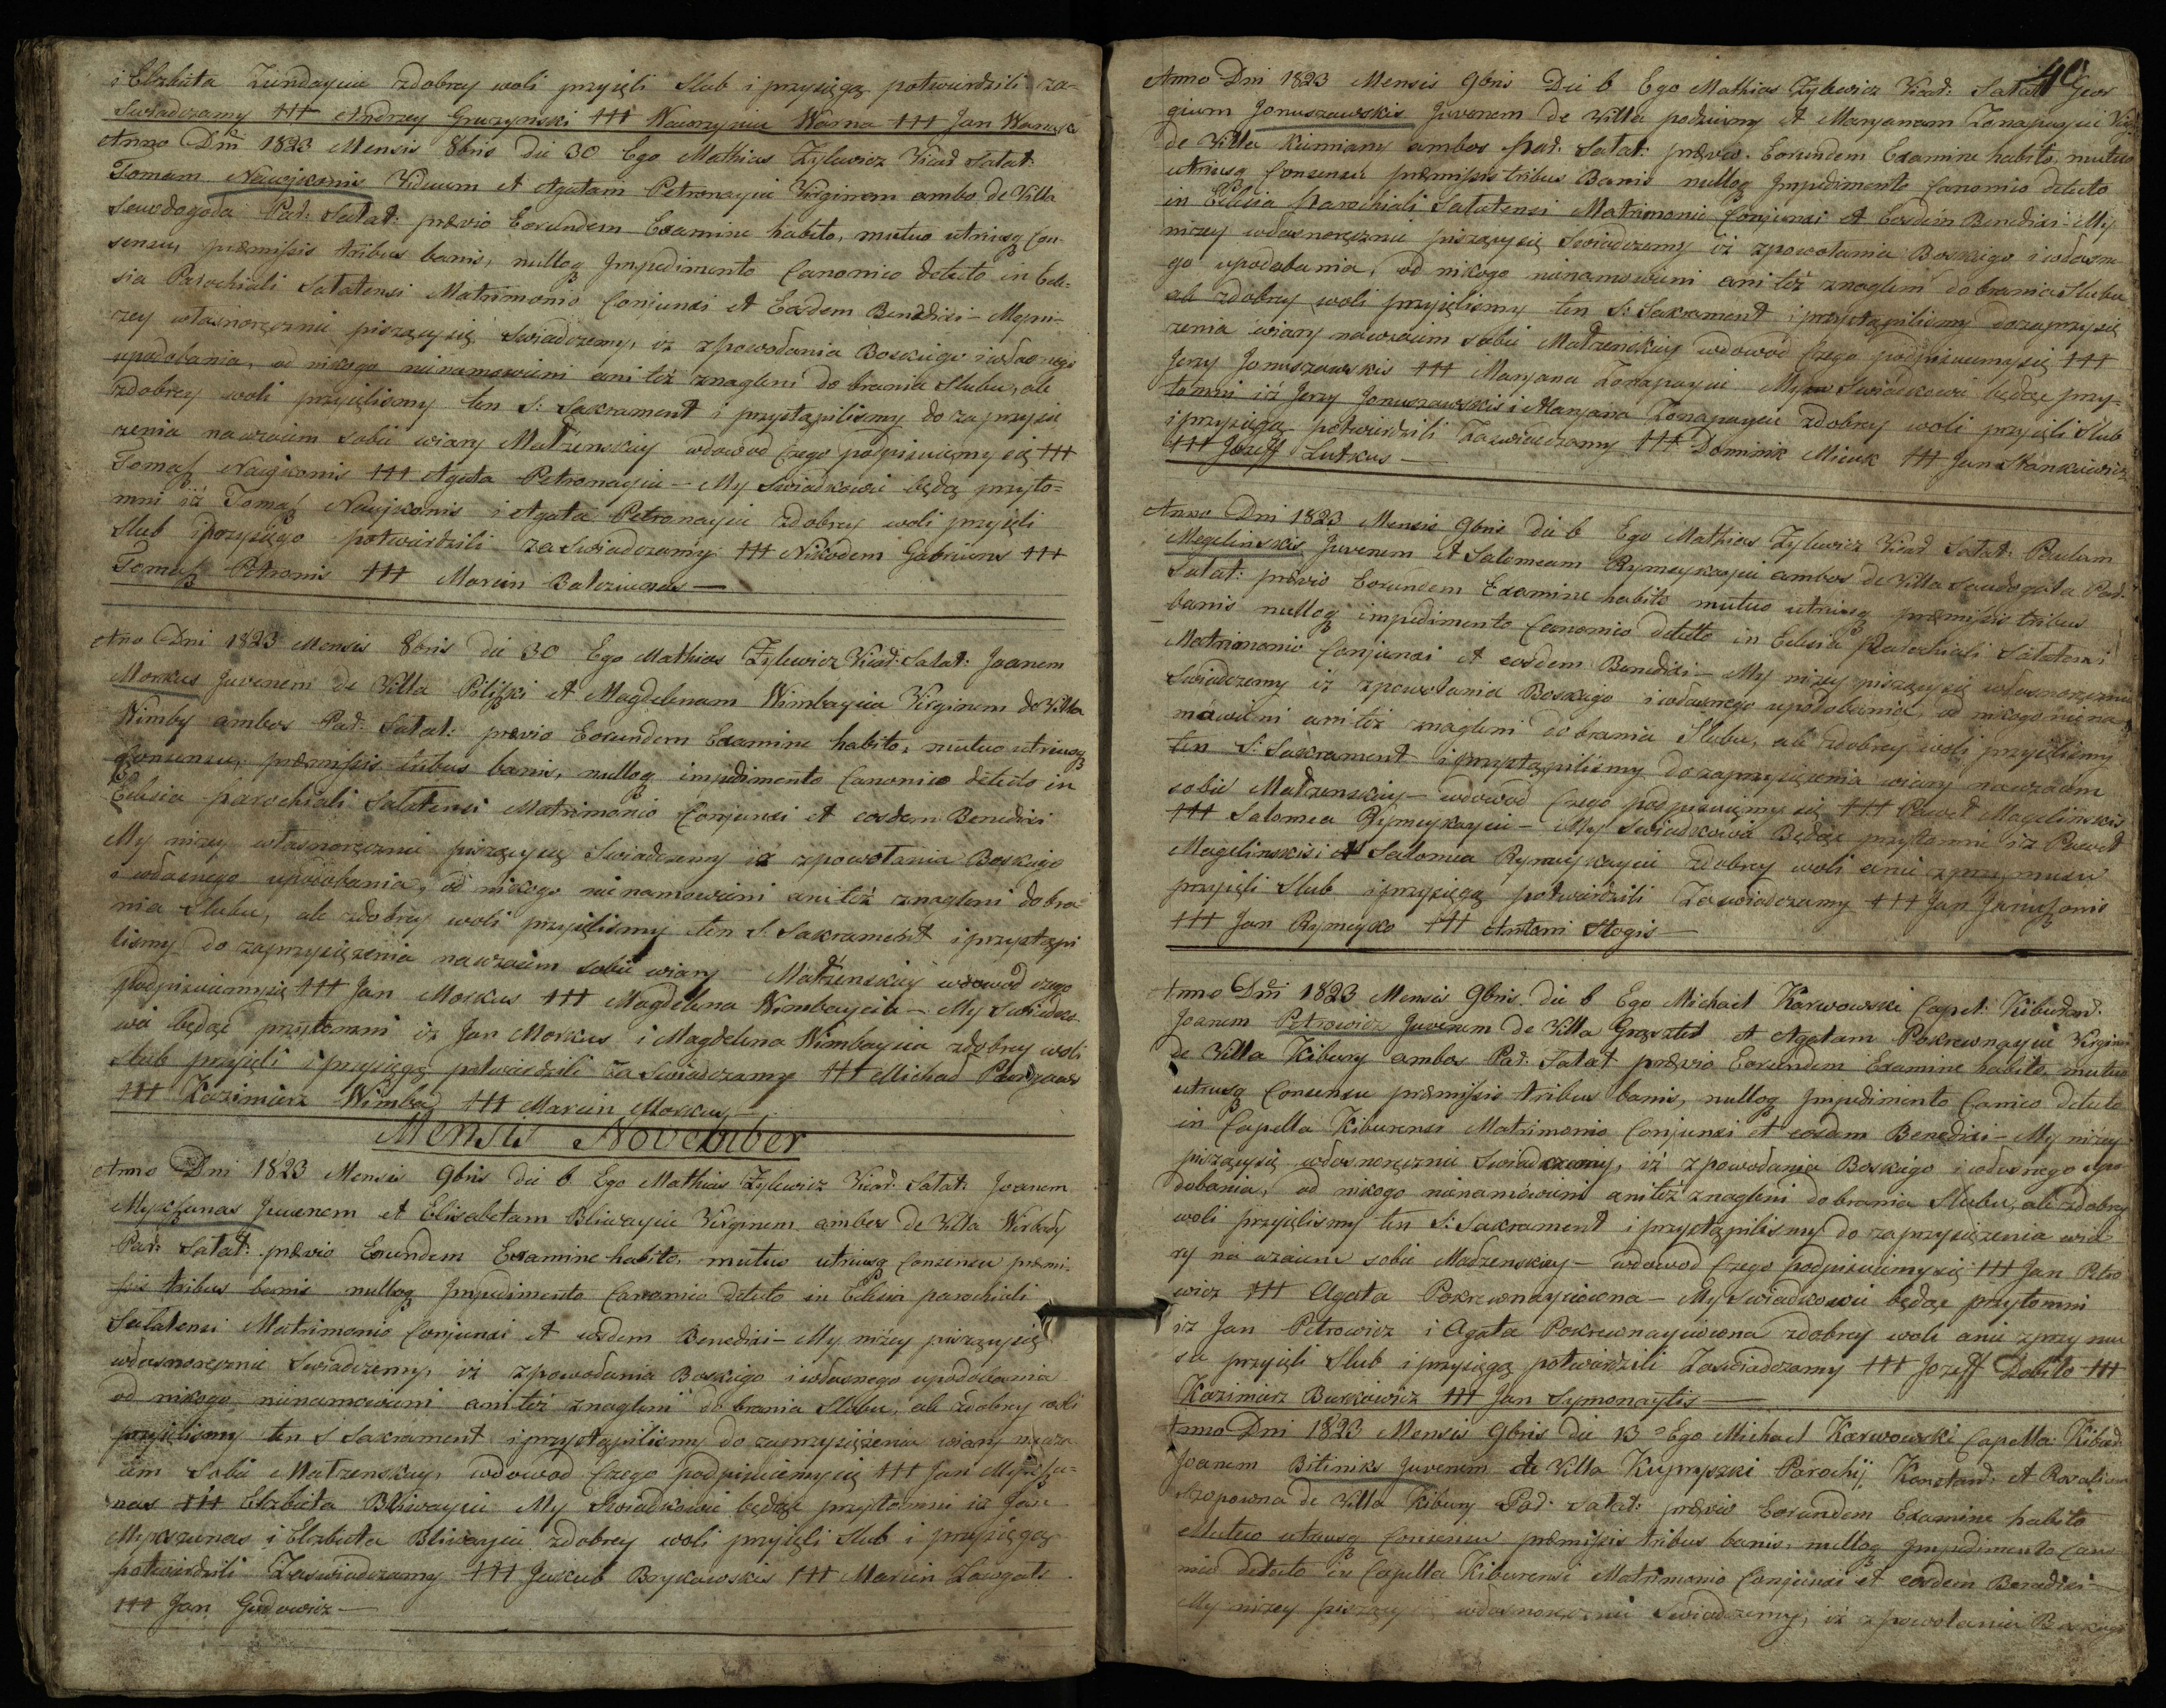 i Elzbieta Zundaycia zdobrey woli przyięli Slub i przysięgą potwierdzili za-
Swiadczamy ttt Andrzey Gruzynski ttt Nawrzyniec Warna ttt Jan
Anno Dni 1823 Mensis 8bris die 30 Ego Mathias Zylewicz Vicar: Salat:
Tomam Nawjkonis Viduum et Agatam Petronaycia Virginem ambo de Villa
Sawdogala Par: Salat: prævio Eorundem Examine habito, mutuo utriusq Con-
sensu, præmissis tribus banis, nulloq Impedimento Canonico detecto in Ecle-
sia Parochiali Salatensi Matrimonio Conjunxi et Eosdem Benedixi – My ni-
zey własnoręcznie piszący się Swiadczemy, iz zpowołania Boskiego i własnego
upodobania, od nikogo nienamowieni ani też znagleni do brania Slubu, ale
zdobrey woli przyięlismy ten S: Sakrament i przystąpilismy do zaprzysię
żenia nawzaiem sobie wiary Małżenskiey wdowod Czego podpisuiemy się ttt
Tomasz Nawjkonis ttt Agata Petronaycia – My Swiadkowie będąc przyto-
mni iż Tomasz Nawjkonis i Agata Petronaycia zdobrey woli przyięli
Slub i przysięgo potwierdzili zaswiadczamy ttt Nikodem Gabriuns ttt
Tomasz Petronis ttt Marcin Balcziunas –
Ano Dni 1823 Mensis 8bris die 30 Ego Mathias Zylewicz Vicar: Salat: Joanem
Morkus Juvenem de Villa Piliszki et Magdelenam Wimbaycia Virginem de Villa
Wimby ambos Par: Salat: prævio Eorundem Examine habito, mutuo utriusq
Consensu, præmissis tribus banis, nulloq impedimento Canonico detecto in
Eclesia parochiali Salatensi Matrimonio Conjunxi et eosdem Benedixi
My nizey własnoręcznie piszący się Swiadczemy iz zpowołania Boskiego
i własnego upodobania, od nikogo nie namowieni ani też znagleni do bra-
nia Slubu, ale zdobrey woli przyięlismy ten S. Sakrament i przystąpi
lismy do zaprzysięzenia nawzaiem sobie wiary Małżenskiey wdowod czego
podpisuiemy się ttt Jan Morkus ttt Magdelena Wimbaycia – My Swiadko-
wie będąc przytomni iz Jan Morkus i Magdelena Wimbaycia zdobrey woli
Slub przyięli i przysięgą potwierdzili zaSwiadczamy ttt Michał
ttt Kazimierz Wimba ttt Marcin Morkus –
Mensis November
Anno Dni 1823 Mensis 9bris die 6 Ego Mathias Zylewicz Vicar: Salat: Joanem
Mykszunas Juvenem et Elisabetam Bliwaycia Virginem ambos de Villa
Par: Salat: prævio Eorundem Examine habito, mutuo utriusq Consensu præmi-
ssis tribus banis nulloq Impedimento Canonico detecto in Eclesia parochiali
Salatensi Matrimonio Conjunxi et eosdem Benedixi – My niżey piszący się
własnoręcznie Swiadczemy, iż zpowołania Boskiego i własnego upodobania
od nikogo nienamowieni ani też znagleni do brania Slubu, ale zdobrey woli
przyięlismy ten S Sakrament i przystąpilismy do zaprzysiężenia wiary nawza
iem Sobie Matzenskiey, wdowod Czego podpisuiemy się ttt Jan Mykszu-
nas ttt Elzbieta Bliwaycia My Swiadkowie będąc przytomni iz Jan
Mykszunas i Elzbieta Bliwaycia zdobrey woli przyięli Slub i przysięgą
potwierdzili Zaswiadczamy ttt Jakub Brykowskis ttt Marcin
ttt Jan Gudowicz –
40
Anno Dni 1823 Mensis 9bris Die 6 Ego Mathias Zylewicz Vicar: Salat: Geor
gium Jonuszewskis Juvenem de Villa podziemy et Maryanam Zonapaycia
de Villa Kumiany ambos Par: Salat: prævio Eorundem Examine habito, mutuo
utriusq Consensu præmissis tribus Banis nulloq Impedimento Canonico detecto
in Eclesia Parochiali Salatensi Matrimonio Conjunxi et Eosdem Benedixi – My
niżey własnoręcznie piszący się Swiadczemy iż zpowołania Boskiego i własne
go upodobania, od nikogo nienamowieni ani też znagleni do brania Slubu
ale zdobrey woli przyięlismy ten S: Sakrament i przystąpilismy dozaprzysię
żenia wiary nawzaiem sobie Matzenskiey wdowod Czego podpisuiemy się ttt
Jerzy Jonuszewskis ttt Maryana Zonapaycia My Swiadkowie będąc przy-
tomni iż Jerzy Jonuszewskis i Maryana Zonapaycia zdobrey woli przyięli Slub
i przysięgą potwierdzili Zaswiadczamy ttt Dominik Miciuk ttt Jan Stankiewicz
ttt Jozeff Lutkus –
Anno Dni 1823 Mensis 9bris die 6 Ego Mathias Zylewicz Vicar Salat: Paulum
Megelinskis Juvenem et Salomeam Rymeykaycia ambos de Villa Sawdogala Par:
Salat: prævio Eorundem Examine habito mutuo utriusq præmissis tribus
banis nulloq impedimento Canonico detecto in Eclesia Parochiali Salatensi
Matrimonio Conjunxi et eosdem Benedixi – My niżey piszący się własnoręcznie
Swiadczemy iz zpowołania Boskiego i własnego upodobania, od nikogo niena
mowieni ani też znagleni do brania Slubu, ale zdobrey woli przyięlismy
ten S: Sakrament i przystąpilismy dozaprzysiężenia wiary nawzaiem
sobie Matzenskiey – wdowod Czego podpisuiemy się ttt Paweł Magelinskis
ttt Salomea Rymeykaycia – My Swiadkowie Będąc przytomni iz Paweł
Magelinskis i Salomea Rymeykaycia zdobrey woli anie zprzymusu
przyięli Slub i przysięgą potwierdzili Zaswiadczamy ttt Jan Januszonis
ttt Jan Rymeyko ttt Antoni Stogis –
Anno Dni 1823 Mensis 9bris die 6 Ego Michael Karwowski Capel: Kiburland:
Joanem Petrowicz Juvenem de Villa et Agatam Pokrewnaycia Virginem
de Villa Kibury ambos Par: Salat prævio Eorundem Examine habito, mutuo
utriusq Consensu præmissis tribus banis, nulloq Impedimento Canico detecto
in Capella Kiburensi Matrimonio Conjunxi et eosdem Benedixi – My niżey
piszący się własnoręcznie Swiadczemy, iż zpowołania Boskiego i własnego upo
dobania, od nikogo nienamówieni ani też znagleni do brania Slubu, ale zdobrey
woli przyięlismy ten S: Sakrament i przystąpilismy do zaprzysiężenia wia
ry na wzaiem sobie Madzenskiey – wdowod Czego podpisuiemy się ttt Jan Petro
wicz ttt Agata Pokrewnayciowna – My Swiadkowie będąc przytomni
iz Jan Petrowicz i Agata Pokrewnayciowna zdobrey woli anie zprzymu
su przyięli Slub i przysięgą potwierdzili Zaswiadczamy ttt Jozeff Dobilo ttt
Kazimierz Burkiewicz ttt Jan Symonaytis –
Anno Dni 1823 Mensis 9bris die 13 Ego Michael Karwowski Capella:
Joanem Bitiniks Juvenem de Villa Kupryszki Parochij et Rosaliam
Szopowna de Villa Kibury Par: Salat: prævio Eorundem Examine habito
Mutuo utriusq Consensu præmissis tribus banis, nulloq Impedimento Cano
nico detecto in Capella Kiburensi Matrimonio Conjunxi et eosdem Benedixi –
My nizey piszący własnoręcznie Swiadczemy, iż zpowołania Boskiego